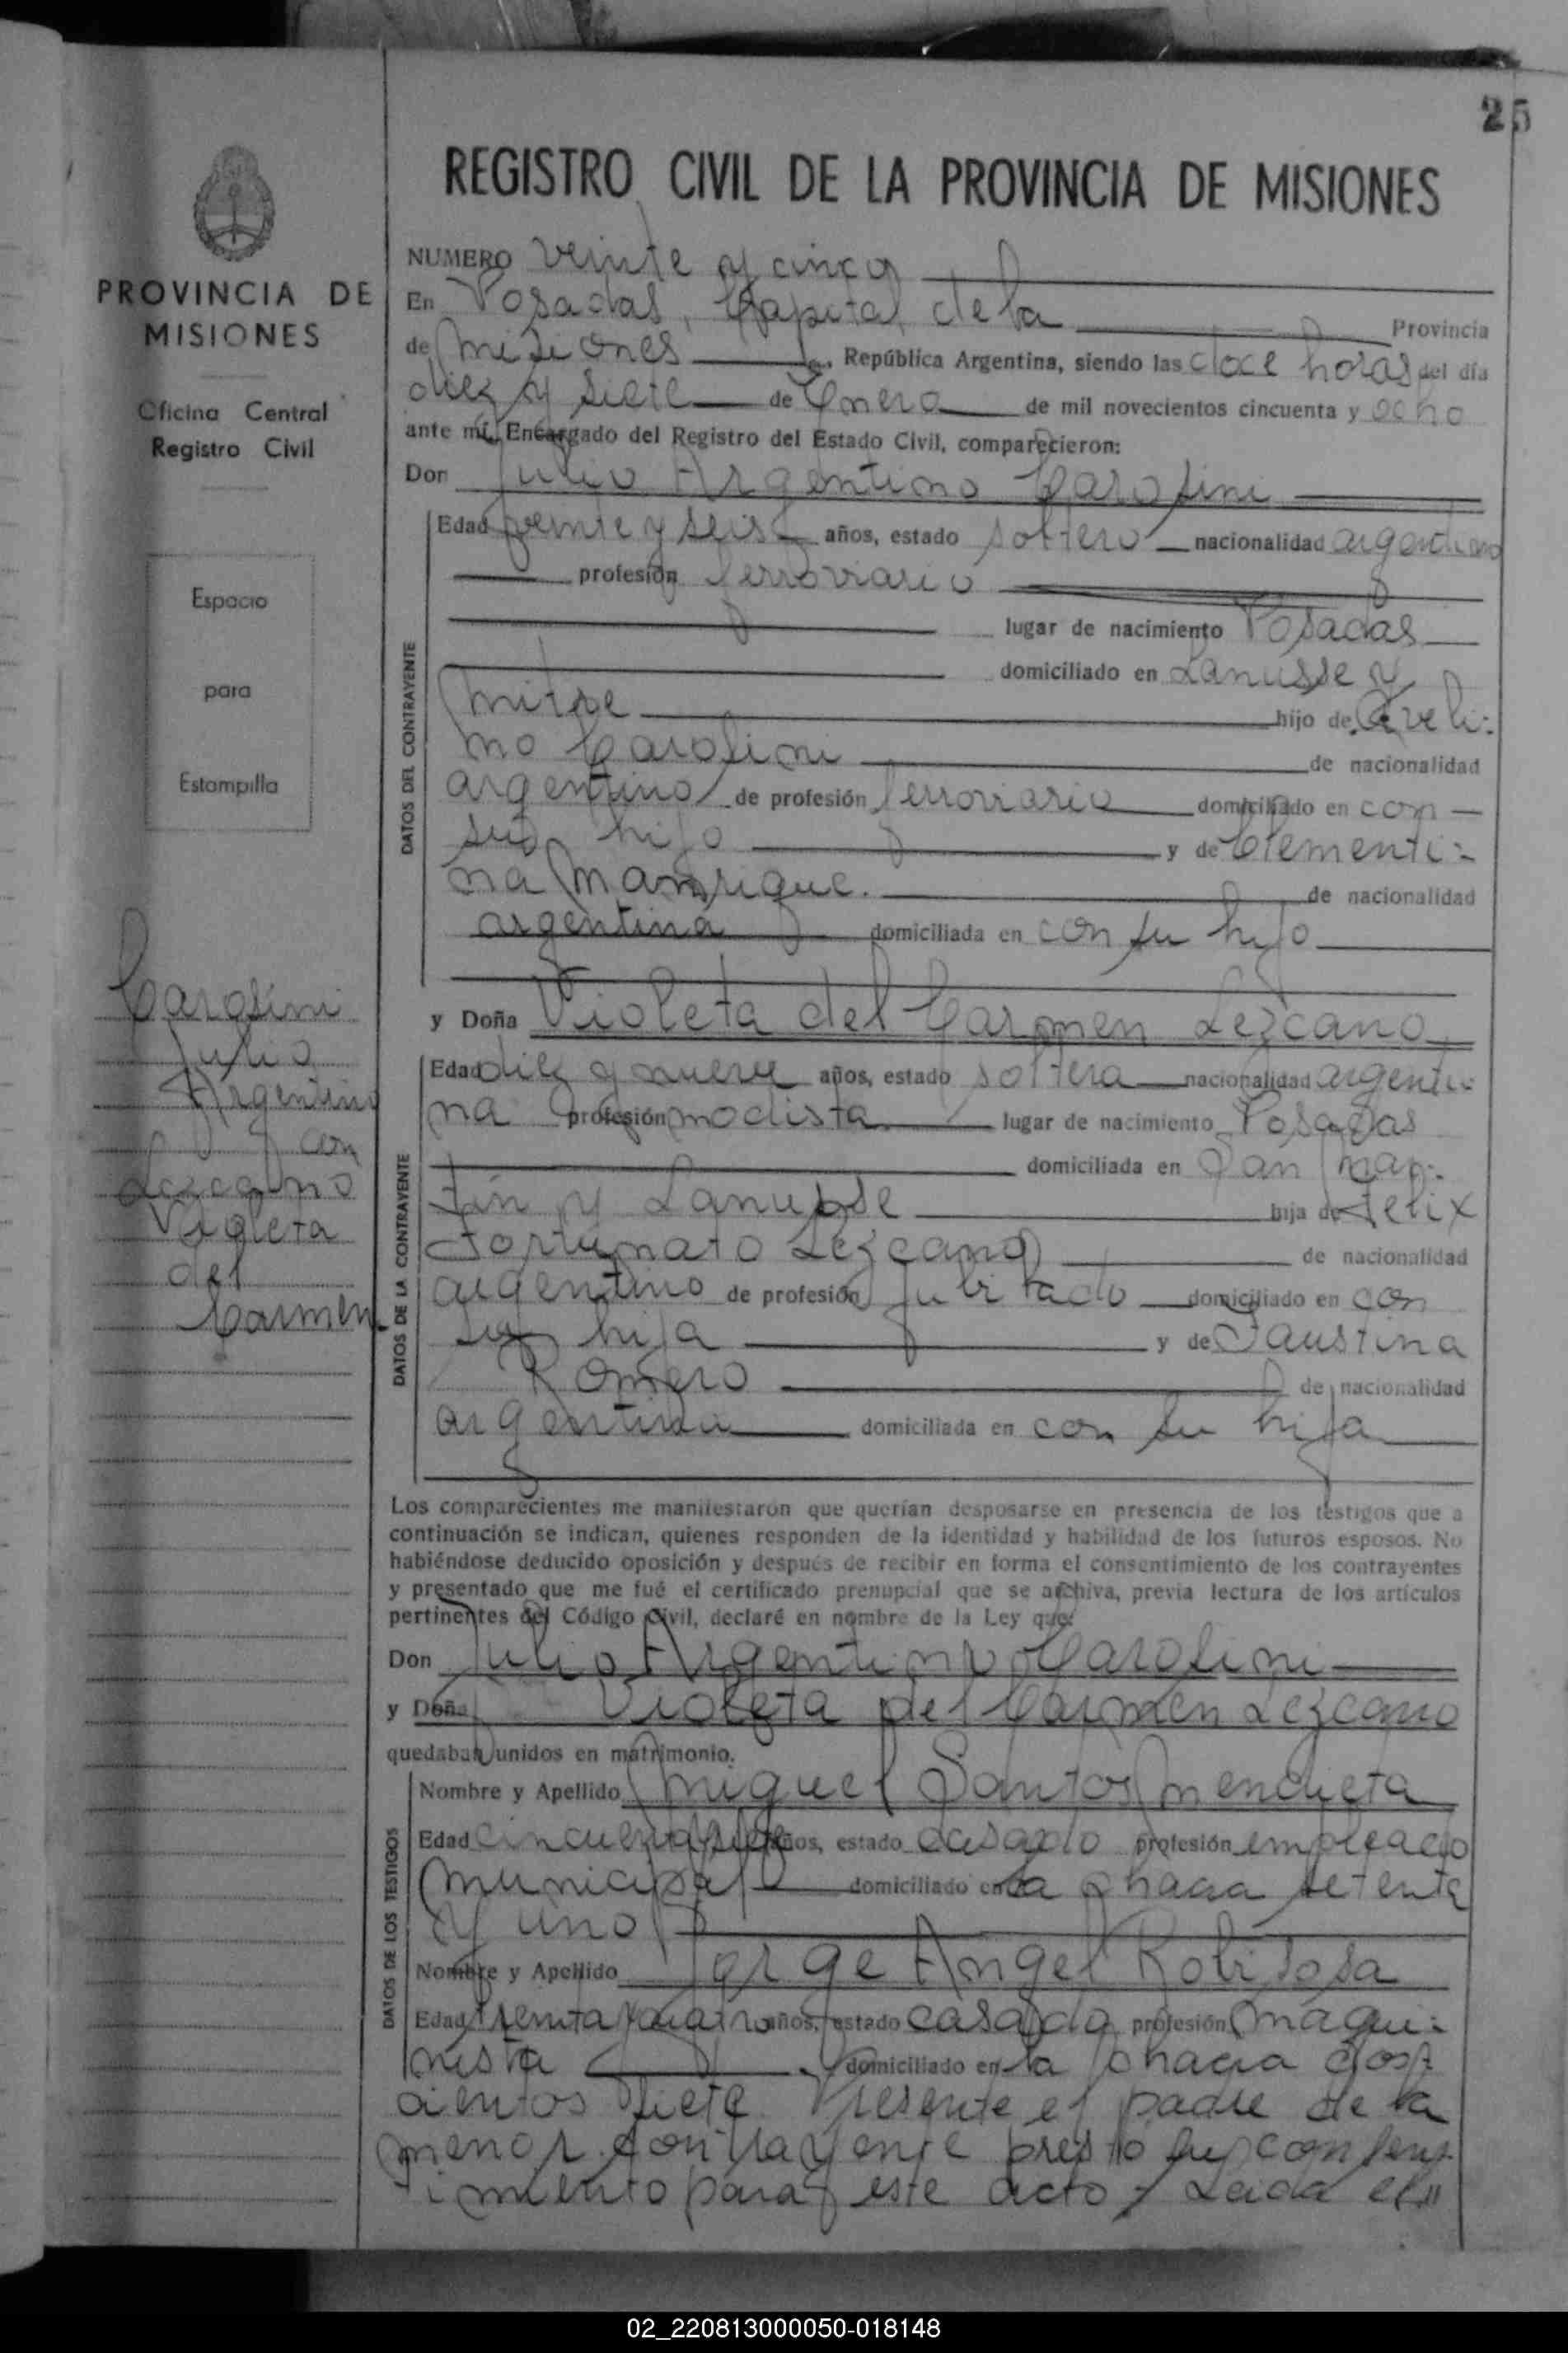 25
REGISTRO CIVIL DE LA PROVINCIA DE MISIONES
PROVINCIA DE
MISIONES
Oficina Central
Registro Civil
Espacio
para
Estampilla
Carolini
Julio
Argentino
con
Lezcano
Violeta
del
Carmen
NUMERO veinte y cinco
En Posadas, Capital de la Provincia
de Misiones, República Argentina, siendo las doce horas del día
diez y siete de Enero de mil novecientos cincuenta y ocho
ante mí, Encargado del Registro del Estado Civil, comparecieron:
Don Julio Argentino Carolini
Edad veinte y seis años, estado soltero nacionalidad argentino
profesión ferroviario
lugar de nacimiento Posadas
domiciliado en Lanusse y
Mitre hijo de Aveli-
no Carolini de nacionalidad
argentino de profesión ferroviario domiciliado en con
su hijo y de Clementi-
na Manrique. de nacionalidad
argentina domiciliada en con su hijo
DATOS DEL CONTRAYENTE
y Doña Violeta del Carmen Lezcano
Edad diez y nueve años, estado soltera nacionalidad argenti-
na profesión modista lugar de nacimiento Posadas
domiciliada en San Mar-
tín y Lanusse hija de Felix
Fortunato Lezcano de nacionalidad
argentino de profesión jubilado domiciliado en con
su hija y de Faustina
Romero de nacionalidad
argentina domiciliada en con su hija
DATOS DE LA CONTRAYENTE
Los comparecientes me manifestaron que querían desposarse en presencia de los testigos que a
continuación se indican, quienes responden de la identidad y habilidad de los futuros esposos. No
habiéndose deducido oposición y después de recibir en forma el consentimiento de los contrayentes
y presentado que me fué el certificado prenupcial que se archiva, previa lectura de los artículos
pertinentes del Código Civil, declaré en nombre de la Ley que:
Don Julio Argentino Carolini
y Doña Violeta del Carmen Lezcano
quedaban unidos en matrimonio.
Nombre y Apellido Miguel Santos Mendieta
Edad cincuenta y siete años, estado casado profesión empleado
municipal domiciliado en la chacra setenta
y uno
Nombre y Apellido Jorge Angel
Edad treinta y cuatro años, estado casado profesión maqui-
nista domiciliado en la chacra dos-
cientos siete. Presente el padre de la
menor contrayente prestó su consen-
timiento para este acto. Leida el
DATOS DE LOS TESTIGOS
02_220813000050-018148